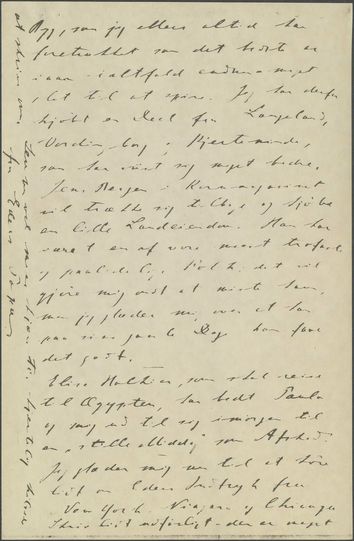 Ryg, som jeg ellers altid har
foretrukket som det bedste er
iaar ialtfald endnu noget
slet til at spire. Jeg har derfor
kjøbt en Deel fra Langeland,
Vordingborg og Kjerteminde,
som har vist sig meget bedre.
Jens Bergen i Kornmagasinet
vil trække sig tilbage og kjøbe
en lille Landeiendom. Han har
været en af vore meest trofaste
og paalidelige Folk; det vil
gjøre mig ondt at miste ham,
men jeg glæder mig over at han
paa sine gamle Dage kan faae
det godt.
Elise, som skal reise
til Ægypten, har bedt Paula
og mig ud til sig imorgen til
en "stille Middag" som Afsked.
Jeg glæder mig nu til at høre
lidt om Eders Indtryk fra
New York, Niagara og Chicago
Skriv lidt udførligt - den er meget
at skrive om. Lev nu vel
fra Eders Papa